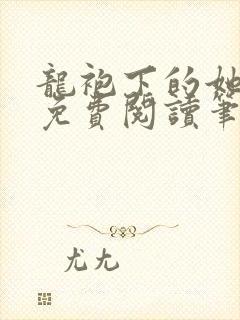 龍袍下的她
免費閱讀筆
尤尢